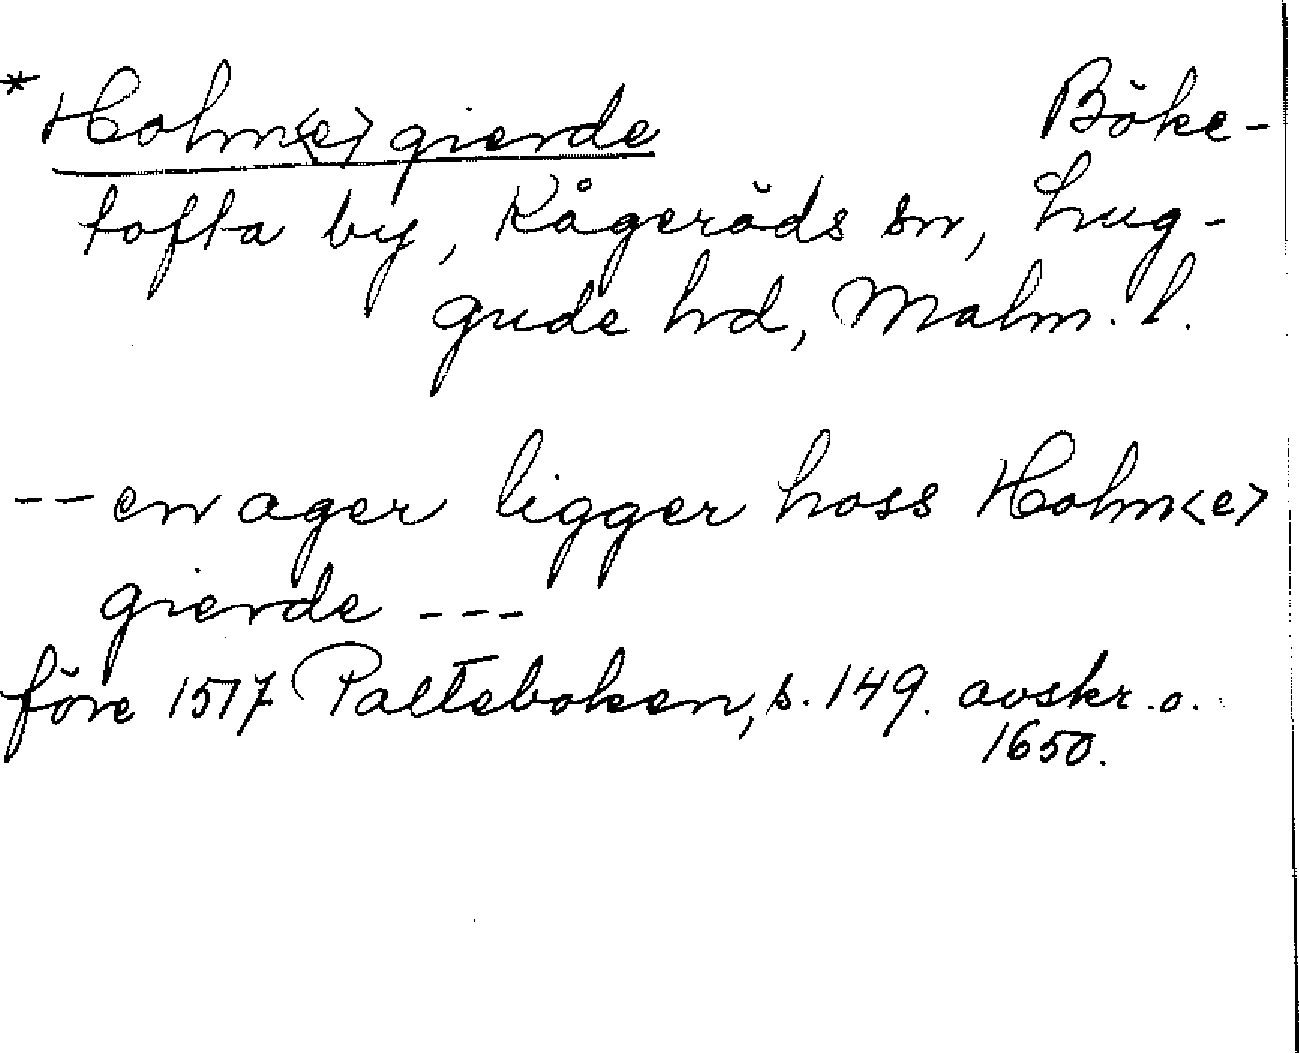 * Holm<e> gierde Böke-
tofta by, Kågeröds sn, Lug-
gude hd, Malm. l.
-- en ager ligger hoss Holm<e>
gierde ---
före 1517 Palteboken, s. 149. avskr. o.
1650.